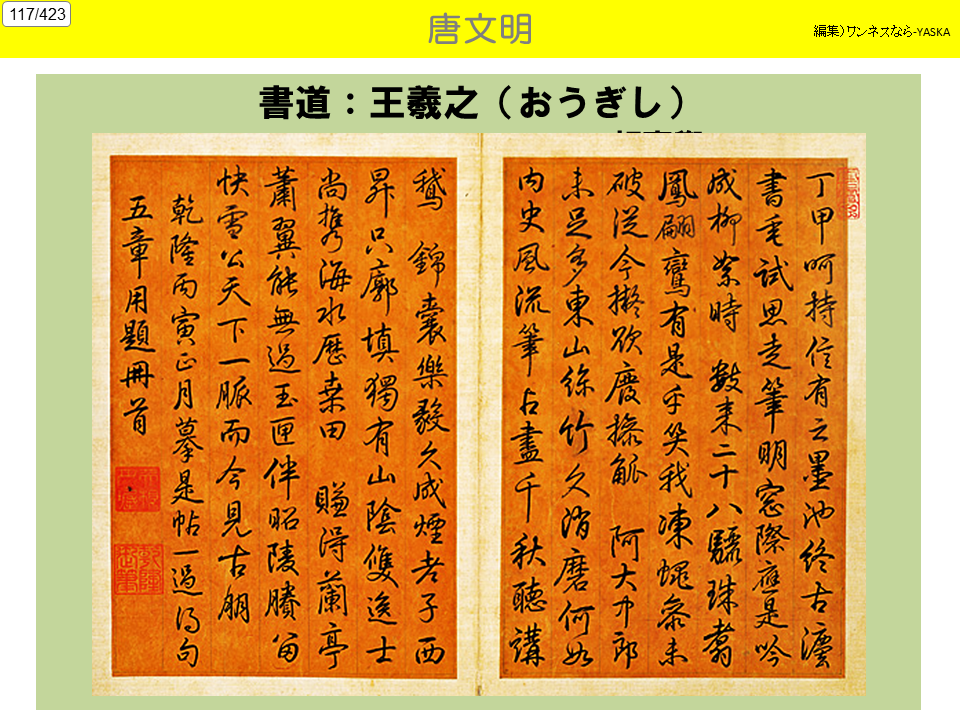 117/423
唐文明
編集）ワンネスなら-YASKA
書道：王羲之（おうぎし）
丁甲呵持信有之墨池終古瀍
書毫試思走筆明窓際應是吟
成柳絮時 數来二十八驪珠翥
鳳翩鸞有是乎笑我凍蝇参未
破従今擬欲廢操觚 阿大中郎
未足多東山絲竹久消磨何如
内史風流筆占盡千秋聽講
鵞 錦囊樂毅久成煙老子西
昇只廓填獨有山陰雙逸士
尚攜海水歴桒田 賺得蘭亭
蕭翼能無過玉匣伴昭陵賸留
快雪公天下一脈而今見古朋
乾隆丙寅正月摹是帖一過得句
五章用題冊首